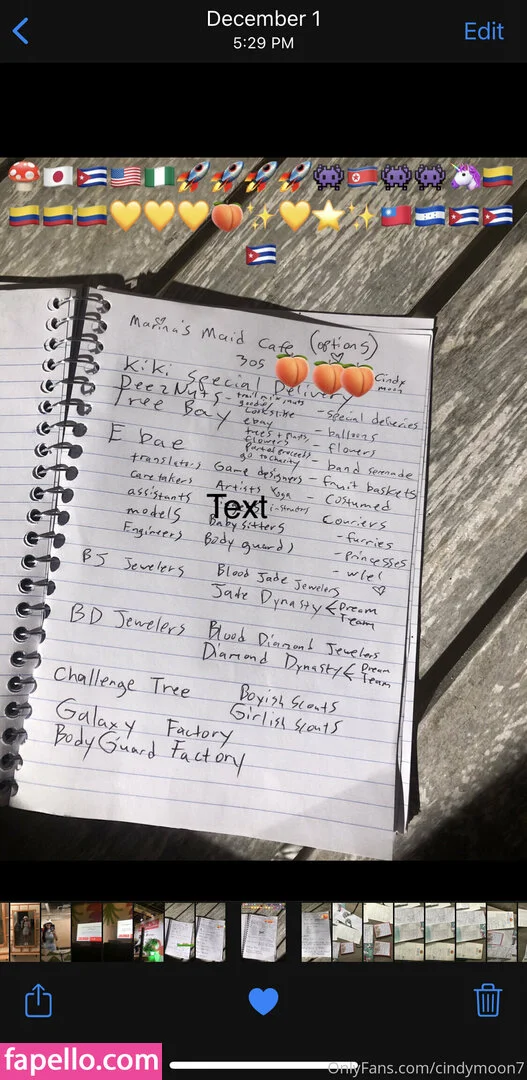 December 1
5:29 PM
Edit
Marina's Maid Cafe (options)
305
Cindy moon
Kiki Special Delivery
DeezNuts - trail mix, nuts
goodies
Tree Bay
looks like
ebay
trees + nuts
flowers
part of proceeds
go to charity
- special deliveries
- balloons
- flowers
- band serenade
- fruit baskets
- costumed
couriers
- furries
- princesses
- wlel
E bae
translators Game designers
caretakers Artists Yoga
assistants instructors
models Babysitters
Engineers Bodyguards
Text
BJ Jewelers Blood Jade Jewelers
Jade Dynasty < Dream
Team
BD Jewelers Blood Diamond Jewelers
Diamond Dynasty < Dream
Team
Challenge Tree Boyish Scouts
Girlish Scouts
Galaxy Factory
BodyGuard Factory
fapello.com
OnlyFans.com/cindymoon7